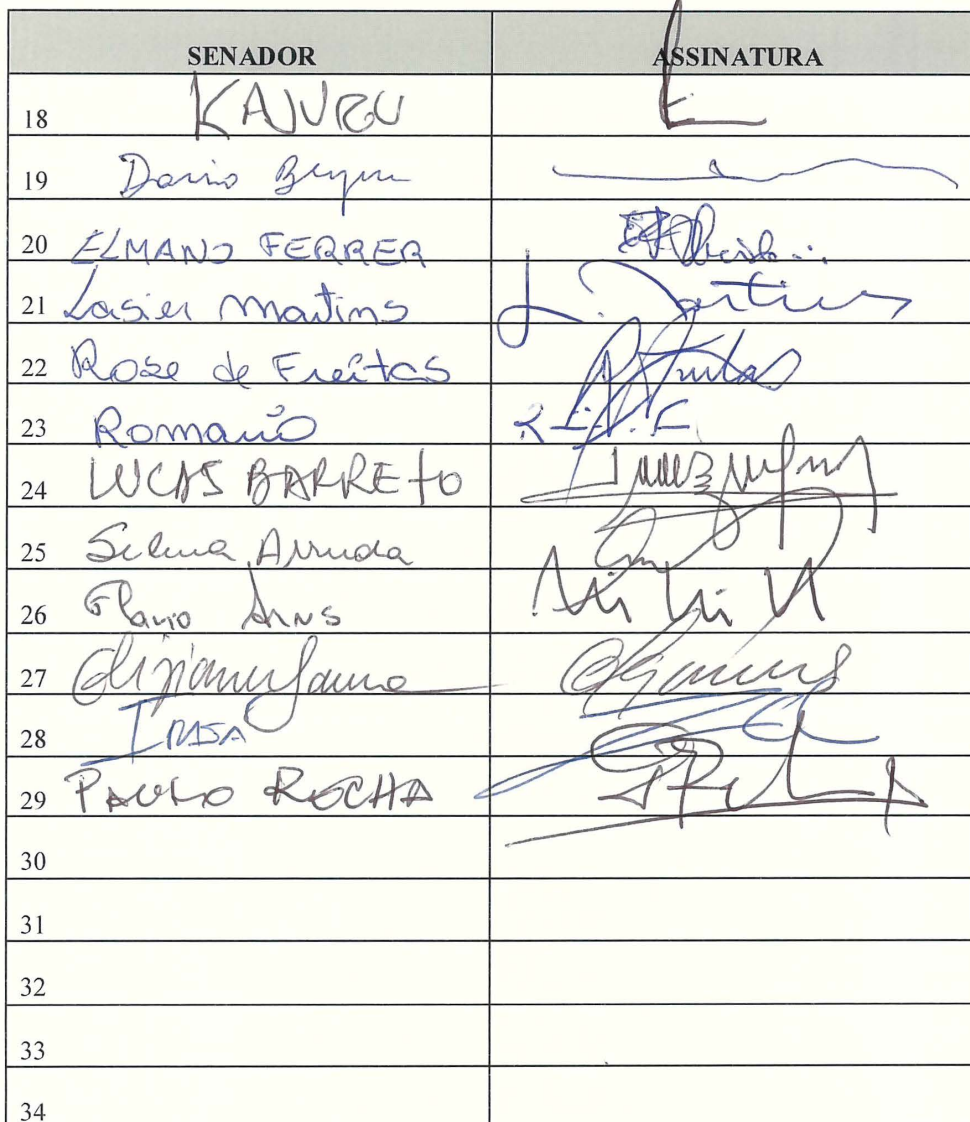 SENADOR ASSINATURA
18 KAJURU
19 Dario Berger
20 ELMANO FERRER
21 Lasier Martins L. Martins
22 Rose de Freitas RFreitas
23 Romário
24 LUCAS BARRETO
25 Selma Arruda
26 Flavio Arns
27 Eliziane Gama
28 IRAJA
29 PAULO ROCHA
30
31
32
33
34